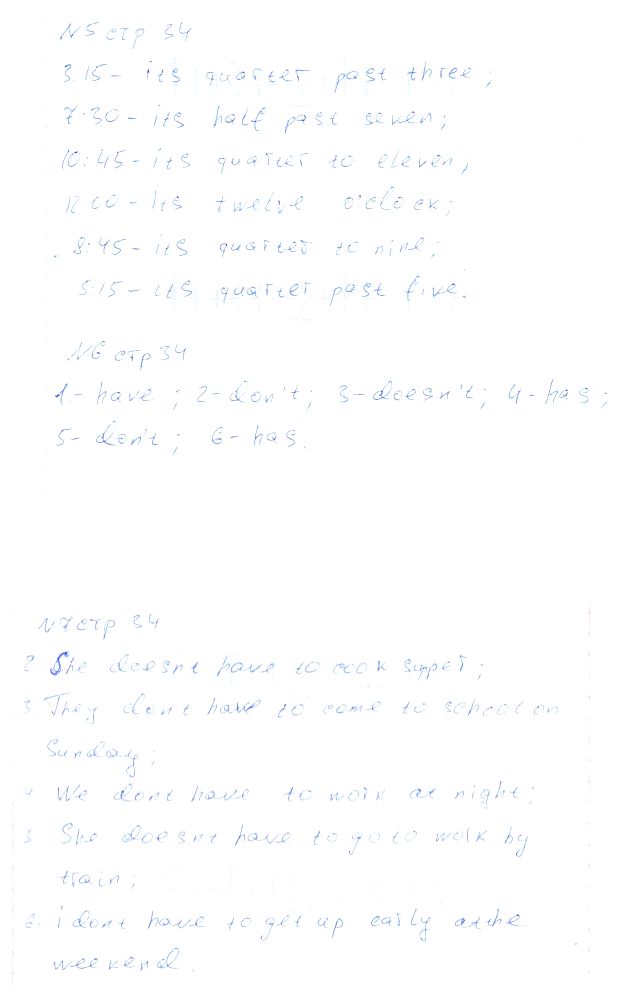 N5 стр 34
3.15 - its quarter past three;
7:30 - its half past seven;
10:45 - its quarter to eleven,
12:00 - Its twelve o'clock;
8:45 - its quarter to nine;
5:15 - its quarter past five.
N6 стр 34
1.- have ; 2- don't; 3- doesn't; 4- has;
5- don't; 6- has.
N7 стр 34
2 She doesnt have to cook supper;
3. They dont have to come to school on
Sunday;
4 We dont have to work at night;
5 She doesnt have to go to work by
train;
6. i dont have to get up early at the
weekend.